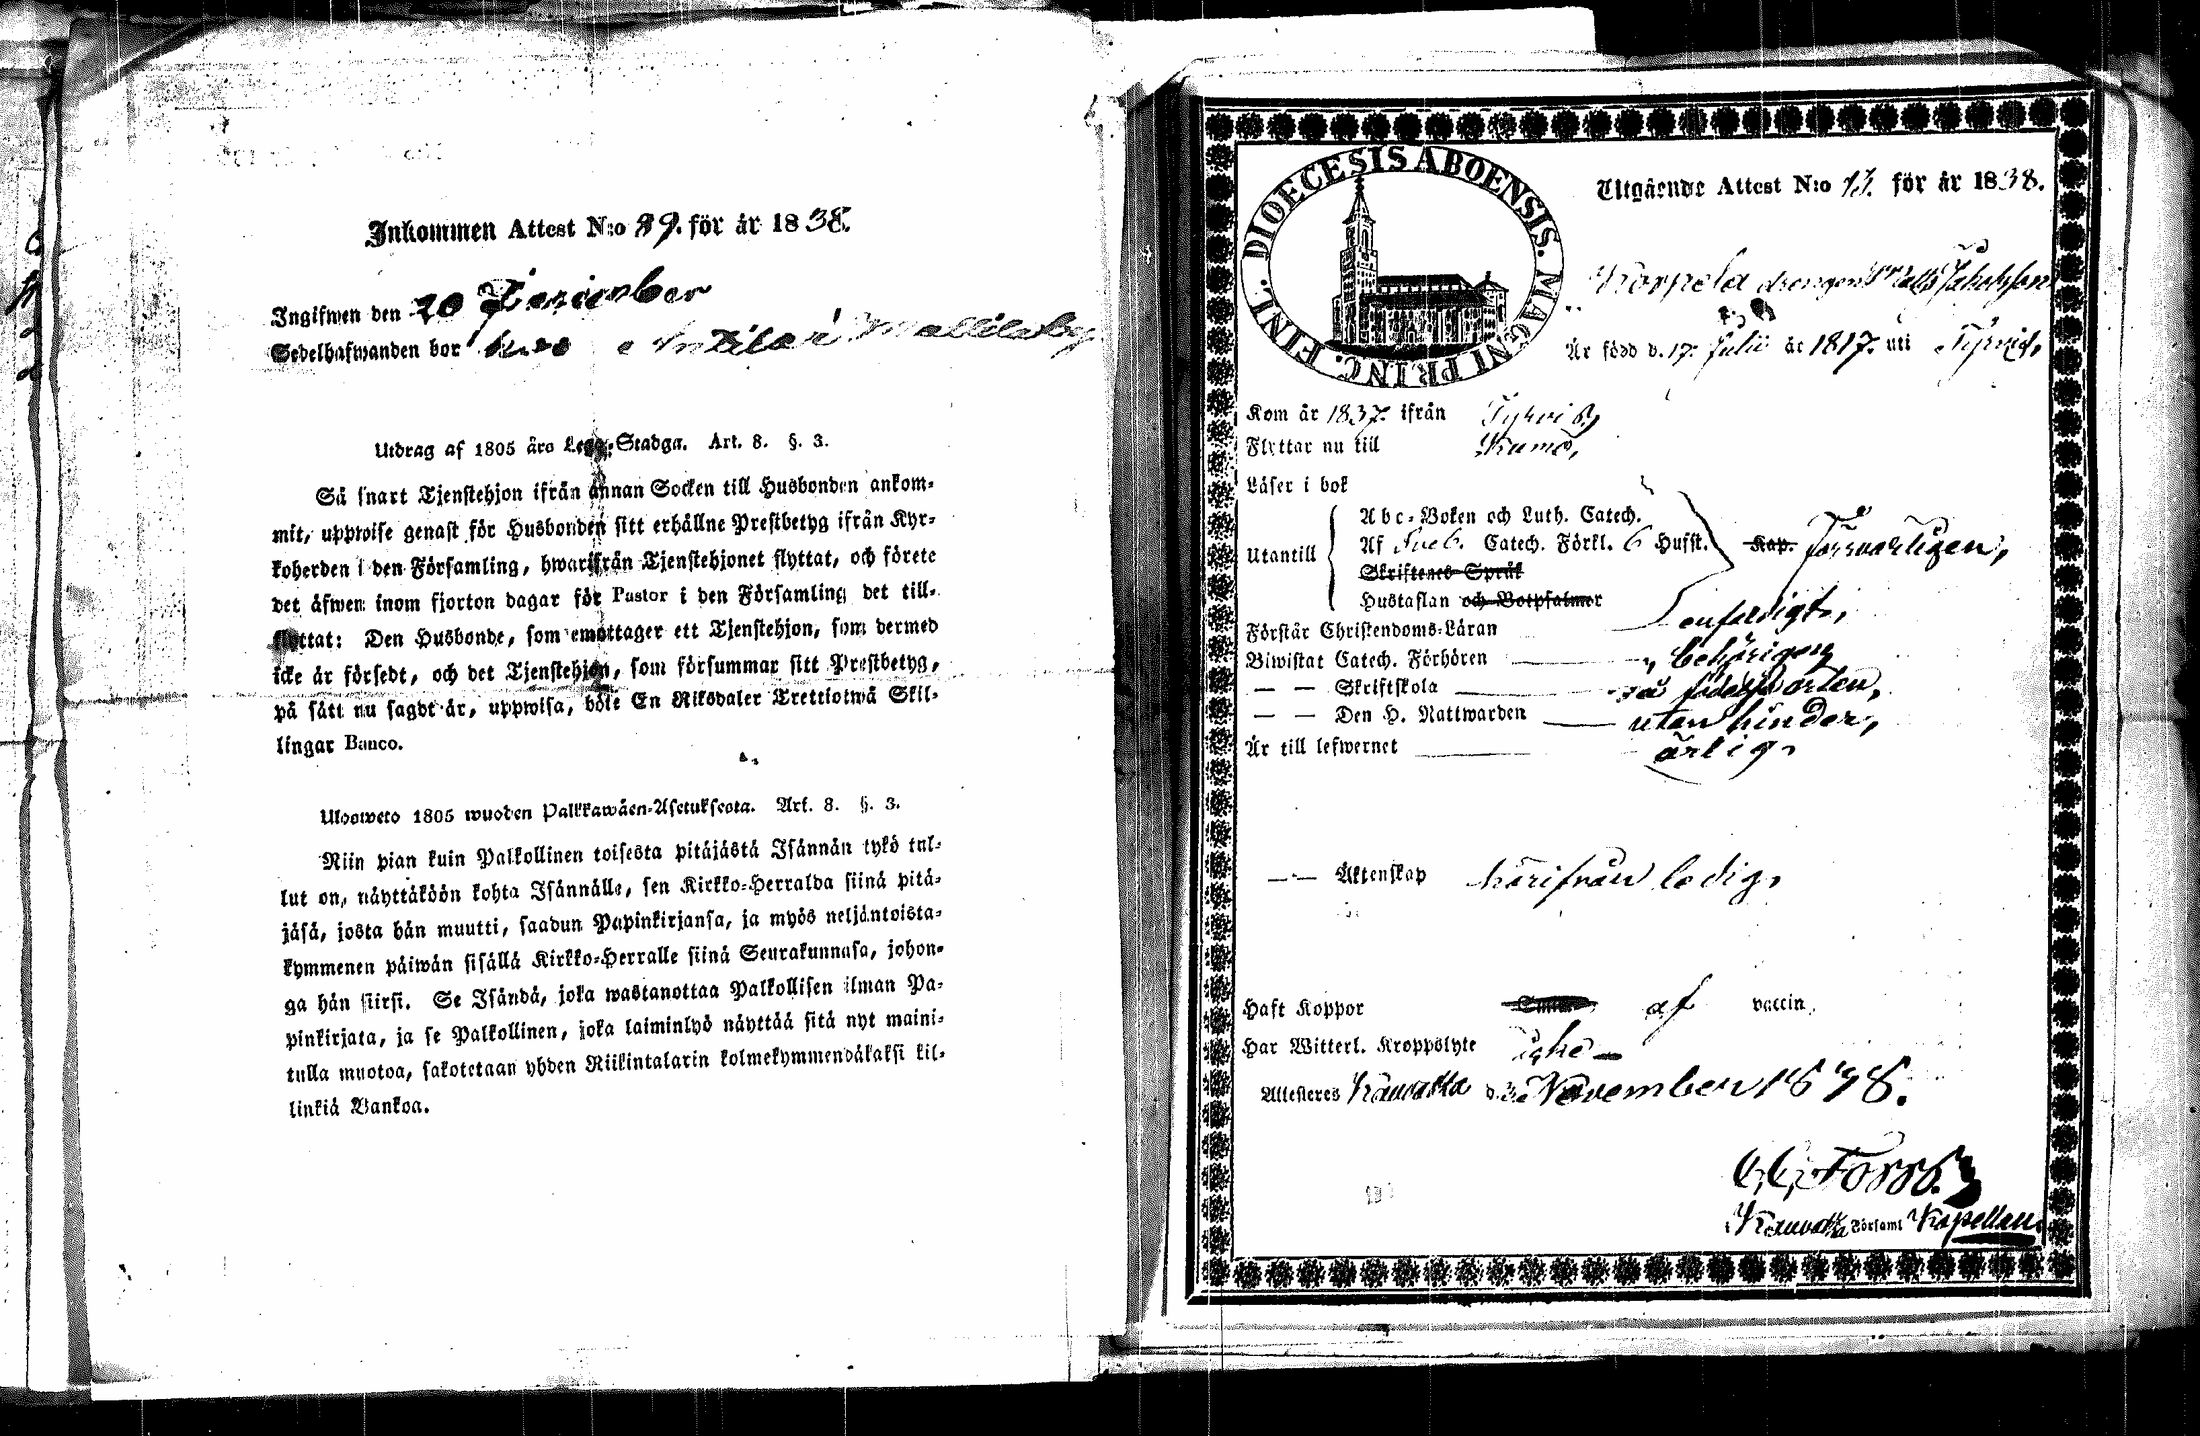 Inkommen Attest N:o 89. för år 1838.
Ingifwen den 20 December
Sedelhafwanden bor hos Anttila i Mallila by
Utdrag af 1805 års Lego-Stadga. Art. 8. §. 3.
Så snart Tjenstehjon ifrån annan Socken till Husbonden ankom-
mit, uppwise genast för Husbonden sitt erhållne Prestbetyg ifrån Kyr-
koherden i den Församling, hwarifrån Tjenstehjonet flyttat, och förete
det äfwen inom fjorton dagar för Pastor i den Församling det till-
flyttat: Den Husbonde, som emottager ett Tjenstehjon, som dermed
icke är försedt, och det Tjenstehjon, som försummar sitt Prestbetyg,
på sätt nu sagdt är, uppwisa, böte En Riksdaler Trettiotwå Skil-
lingar Banco.
Ulosweto 1805 wuoden Palkkawäen-Asetuksesta. Art. 8. §. 3.
Niin pian kuin Palkollinen toisesta pitäjästä Isännän tykö tul-
lut on, näyttäköön kohta Isännälle, sen Kirkko-Herralda siinä pitä-
jäsä, josta hän muutti, saadun Papinkirjansa, ja myös neljäntoista-
kymmenen päiwän sisällä Kirkko-Herralle siinä Seurakunnasa, johon-
ga hän siirsi. Se Isändä, joka wastanottaa Palkollisen ilman Pa-
pinkirjata, ja se Palkollinen, joka laiminlyö näyttää sitä nyt maini-
tulla muotoa, sakotetaan yhden Riikintalarin kolmekymmendäkaksi kil-
linkiä Bankoa.
DIOECESIS ABOENSIS. MAGNI PRINC. FINL.
Utgående Attest N:o 13. för år 1838.
Korpela drengen Matts Jakobsson
Är född d. 17. Julii år 1817. uti Tyrvis,
Kom år 1837. ifrån Tyrvis,
Flyttar nu till Kumo,
Läser i bok
Utantill
Abc-Boken och Luth. Catech.
Af Sveb. Catech. Förkl. 6 Hufst. Kap. försvarligen,
Skriftenes Språk
Hustaflan och Botpsalmer
Förstår Christendoms-Läran enfaldigt,
Biwistat Catech. Förhören behörigen
— — Skriftskola på födelseorten,
— — Den H. Nattwarden utan hinder,
Är till lefwernet ärlig,
— — Äktenskap härifrån ledig,
Haft Koppor af vaccin,
Har Witterl. Kroppslyte icke —
Attesteres Kauvatsa d. November 1838.
Kauvatsa Församl Kapellan.